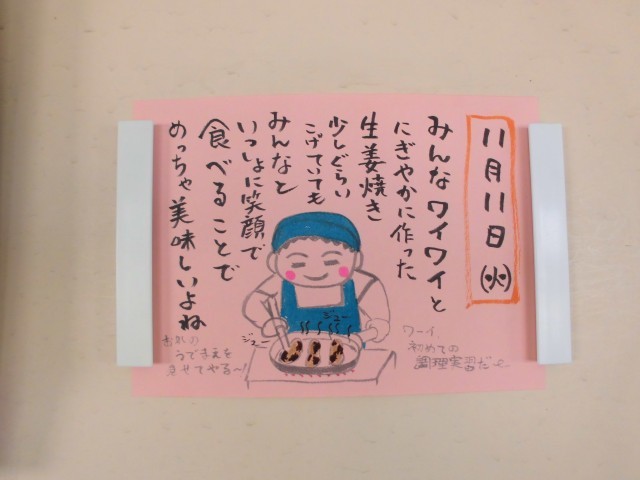 11月11日(火)
みんなワイワイと
にぎやかに作った
生姜焼き
少しぐらい
こげていても
みんなと
いっしょに笑顔で
食べることで
めっちゃ美味しいよね
ジュー
ジュー
ワーイ、
初めての
調理実習だ〜
うでまえを
見せてやる〜!